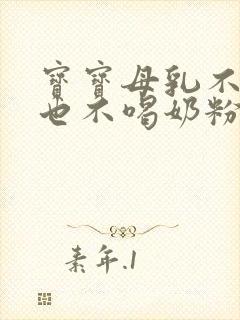 寶寶母乳不
也不喝奶粉
素年.1